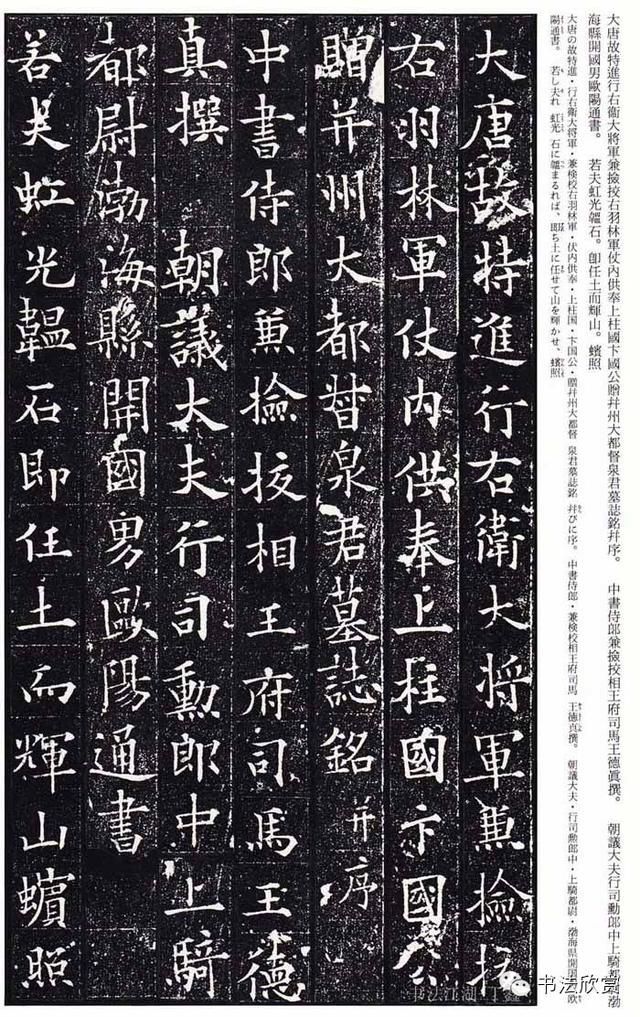 大唐故特進行右衞大將軍兼撿挍右羽林軍仗內供奉上柱國卞國公贈幷州大都督泉君墓誌銘幷序。　中書侍郎兼撿挍相王府司馬王德眞撰。　朝議大夫行司勳郎中上騎都尉渤
海縣開國男歐陽通書。　若夫虹光韞石。卽任土而輝山。蠙照
大唐の故特進・行右衛大将軍・兼検校右羽林軍・仗内供奉・上柱国・卞国公・贈幷州大都督　泉君墓誌銘　幷びに序。　中書侍郎・兼検校相王府司馬　王徳真撰。　朝議大夫・行司勲郎中・上騎都尉・渤海県開国男欧
陽通書。　若し夫れ　虹光　石に韞まるれば、即ち土に任せて山を輝かせ、蠙照
大唐故特進行右衛大將軍兼撿挍
右羽林軍仗內供奉上柱國卞國公
贈并州大都督泉君墓誌銘并序
中書侍郎兼撿挍相王府司馬王德
真撰　朝議大夫行司勳郎中上騎
都尉渤海縣開國男歐陽通書
若夫虹光韞石即任土而輝山蠙照
书法江湖
书法欣赏